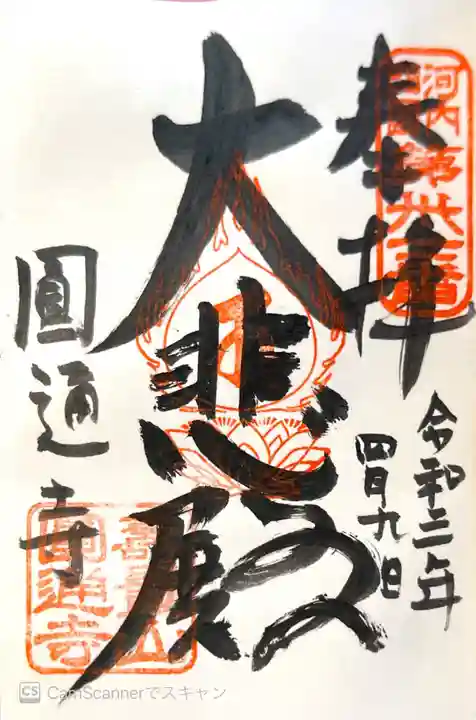 奉拝
河内西国第卅三番
令和三年
四月九日
大悲殿
圓通寺
圓通寺
CS CamScannerでスキャン